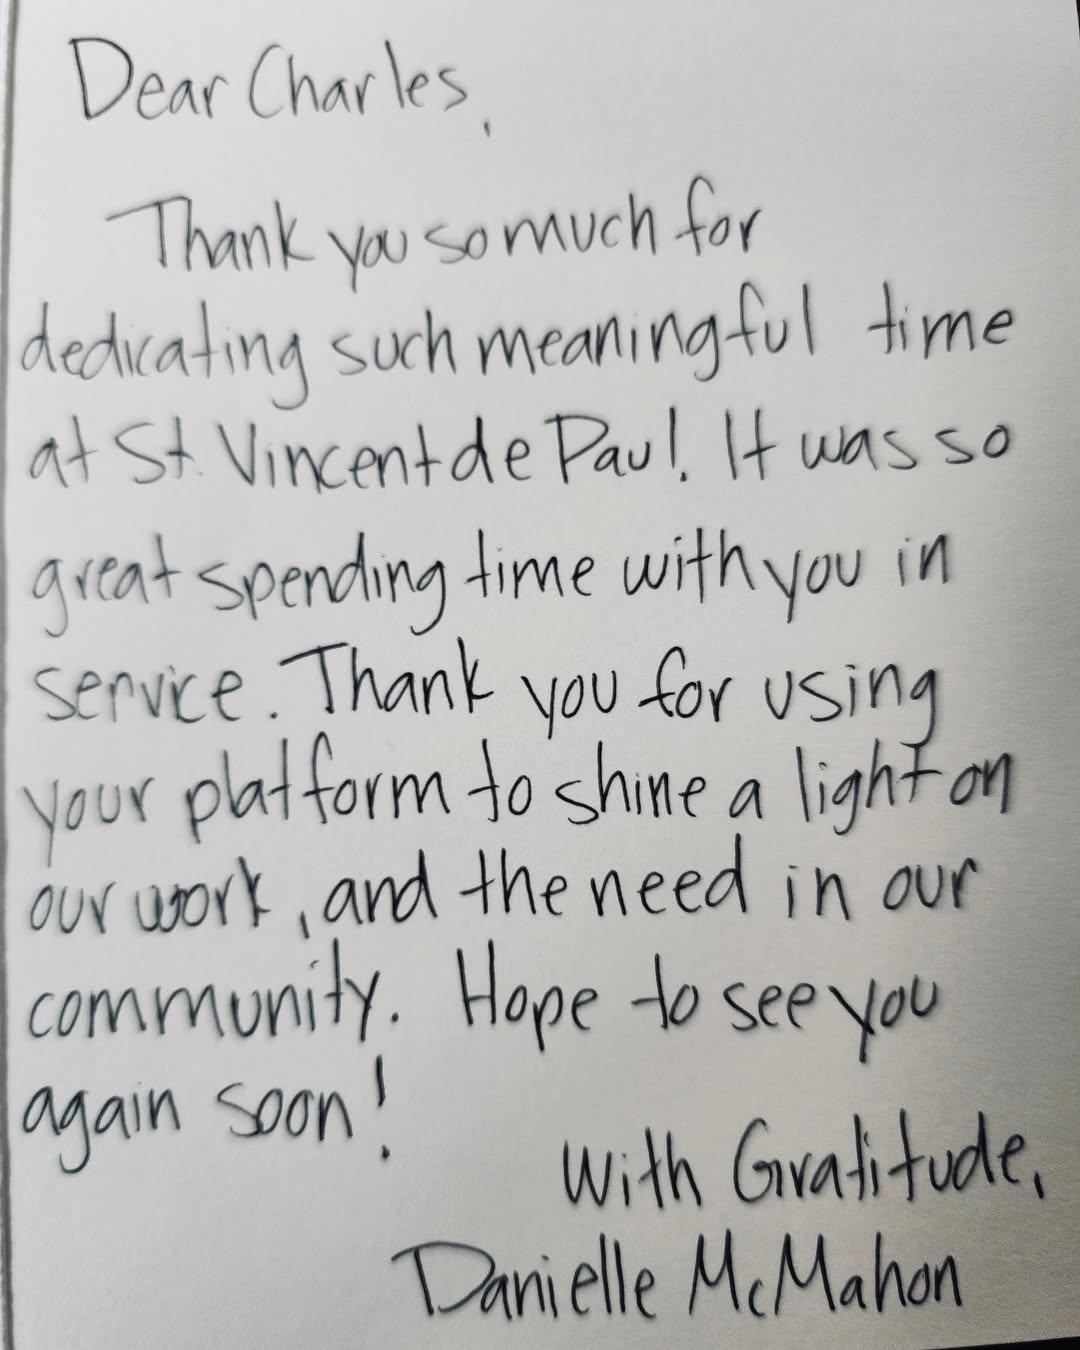 Dear Charles,
Thank you so much for
dedicating such meaningful time
at St. Vincent de Paul. It was so
great spending time with you in
service. Thank you for using
your platform to shine a light on
our work, and the need in our
community. Hope to see you
again soon!
With Gratitude,
Danielle McMahon